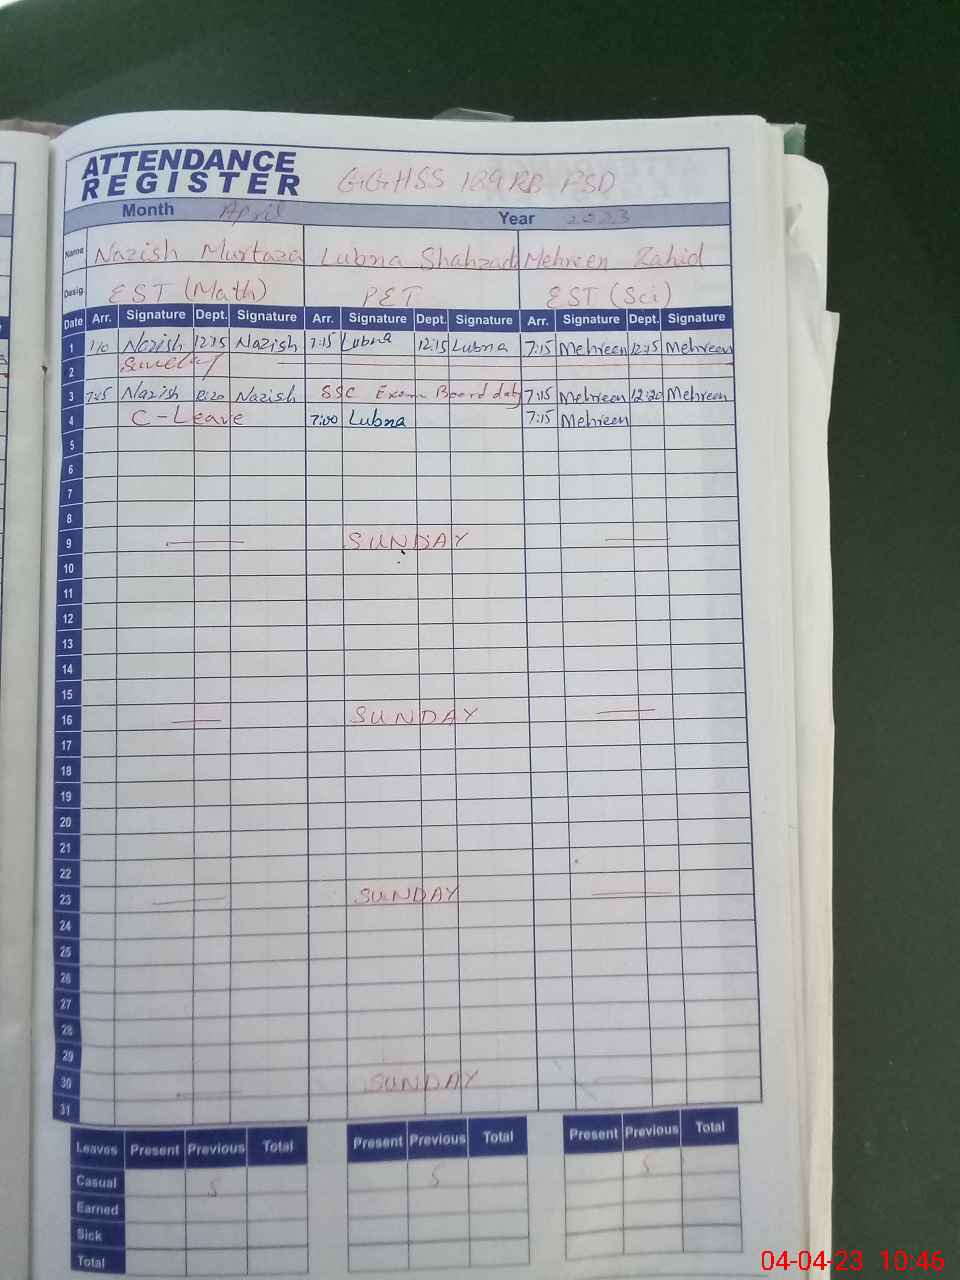 ATTENDANCE
REGISTER GGHSS 189 RB FSD
Month April Year 2023
Name Nazish Murtaza Lubna Shahzad Mehreen Zahid
Desig. EST (Math) PET EST (Sci)
Date Arr. Signature Dept. Signature Arr. Signature Dept. Signature Arr. Signature Dept. Signature
1 Nazish 12:15 Nazish 7:15 Lubna 12:15 Lubna 7:15 Mehreen 12:15 Mehreen
2
3 7:15 Nazish 12:20 Nazish SSC Exam Board duty 7:15 Mehreen 12:20 Mehreen
4 C-Leave 7:00 Lubna 7:15 Mehreen
5
6
7
8
9 SUNDAY
10
11
12
13
14
15
16 SUNDAY
17
18
19
20
21
22
23 SUNDAY
24
25
26
27
28
29
30 SUNDAY
31
Leaves Present Previous Total Present Previous Total Present Previous Total
Casual 5 5 5
Earned
Sick
Total
04-04-23 10:46